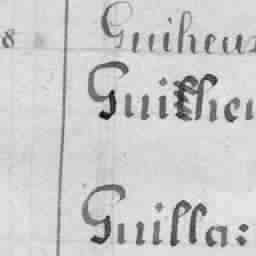 8 Guiheu
Guilheu
Guilla: